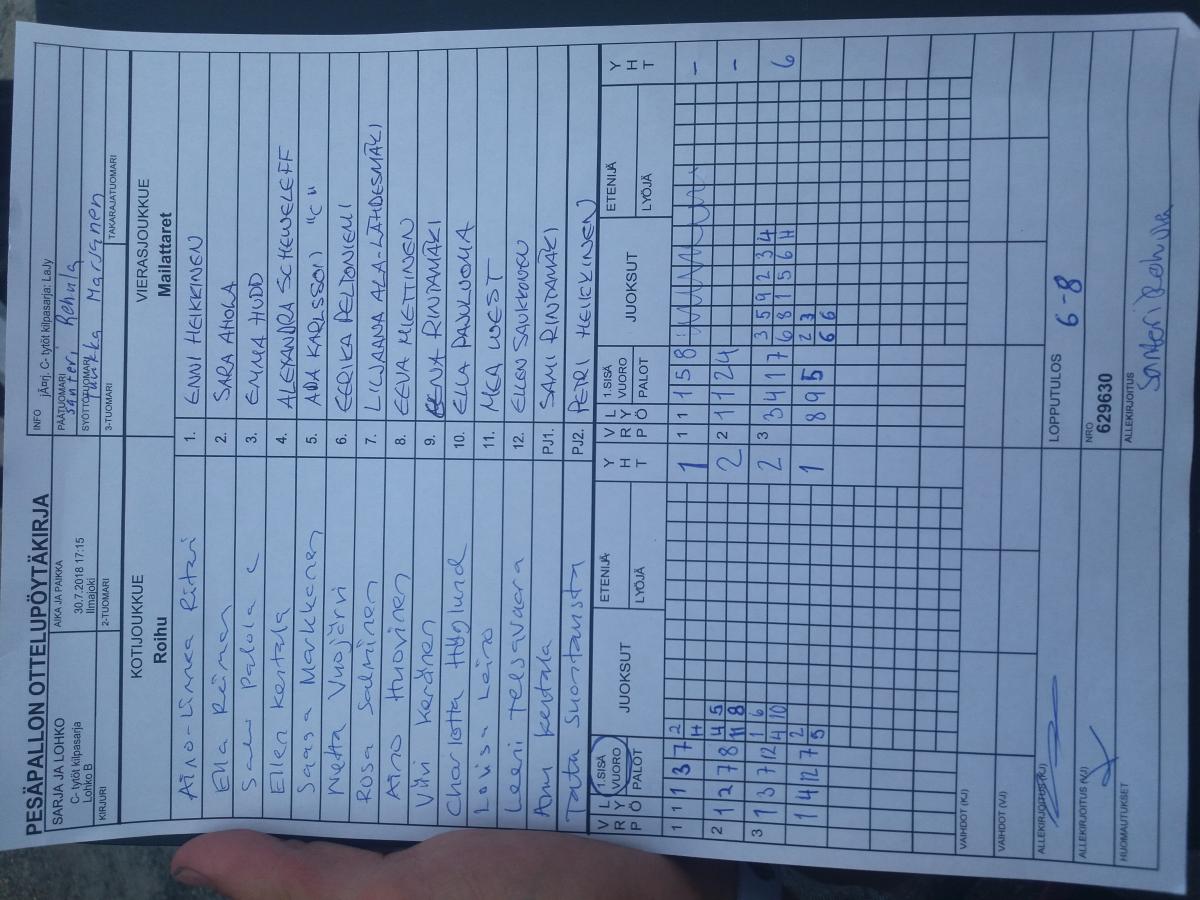 PESÄPALLON OTTELUPÖYTÄKIRJA
SARJA JA LOHKO
C- tytöt kilpasarja
Lohko B
AIKA JA PAIKKA
30.7.2018 17:15
Ilmajoki
INFO jÄrj. C- tytöt kilpasarja: LaJy
PÄÄTUOMARI
Santeri Rehula
SYÖTTÖTUOMARI
Marjanen
KIRJURI
2-TUOMARI
3-TUOMARI
TAKARAJATUOMARI
KOTIJOUKKUE
Roihu
VIERASJOUKKUE
Mailattaret
Aino-Linnea Ritari
1. ENNI HEIKKINEN
Ella Reiman
2. SARA AHOLA
Palola C
3. EMMA HUDD
Ellen Kentala
4. ALEXANDRA SCHEWELEFF
Markkanen
5. ADA KARLSSON "C"
Netta Vuojärvi
6. EERIKA PELDONIEMI
Rosa Salminen
7. LILJAANA ALA-LAHDESMÄKI
Aino Huovinen
8. EEVA MIETTINEN
Viivi Keränen
9. RINTAMÄKI
Charlotta Höglund
10. ELLA PANKUOMA
Lovisa Leino
11. MEA WEST
Leeni Telsavaara
12. ELLEN SAUKKONEN
Anu Kentala
PJ1. SAMI RINTAMÄKI
Suontausta
PJ2. PETRI HEIKKINEN
V R P
L Y Ö
1.SISÄ VUORO
PALOT
JUOKSUT
ETENIJÄ
LYÖJÄ
Y H T
V R P
L Y Ö
1.SISÄ VUORO
PALOT
JUOKSUT
ETENIJÄ
LYÖJÄ
Y H T
1 1 1 3 7 2 H 1
1 1 1 5 8 -
2 1 2 7 8 4 5 11 8 2
2 1 1 2 4 -
3 1 3 7 12 1 6 4 10 2
3 3 4 1 7 3 5 9 2 3 4 6 8 1 5 6 H 6
1 4 12 7 2 5 1
8 9 5 2 3 6 6
VAIHDOT (KJ)
VAIHDOT (VJ)
ALLEKIRJOITUS (KJ)
LOPPUTULOS 6-8
ALLEKIRJOITUS (VJ)
NRO
629630
HUOMAUTUKSET
ALLEKIRJOITUS
Santeri Rehula